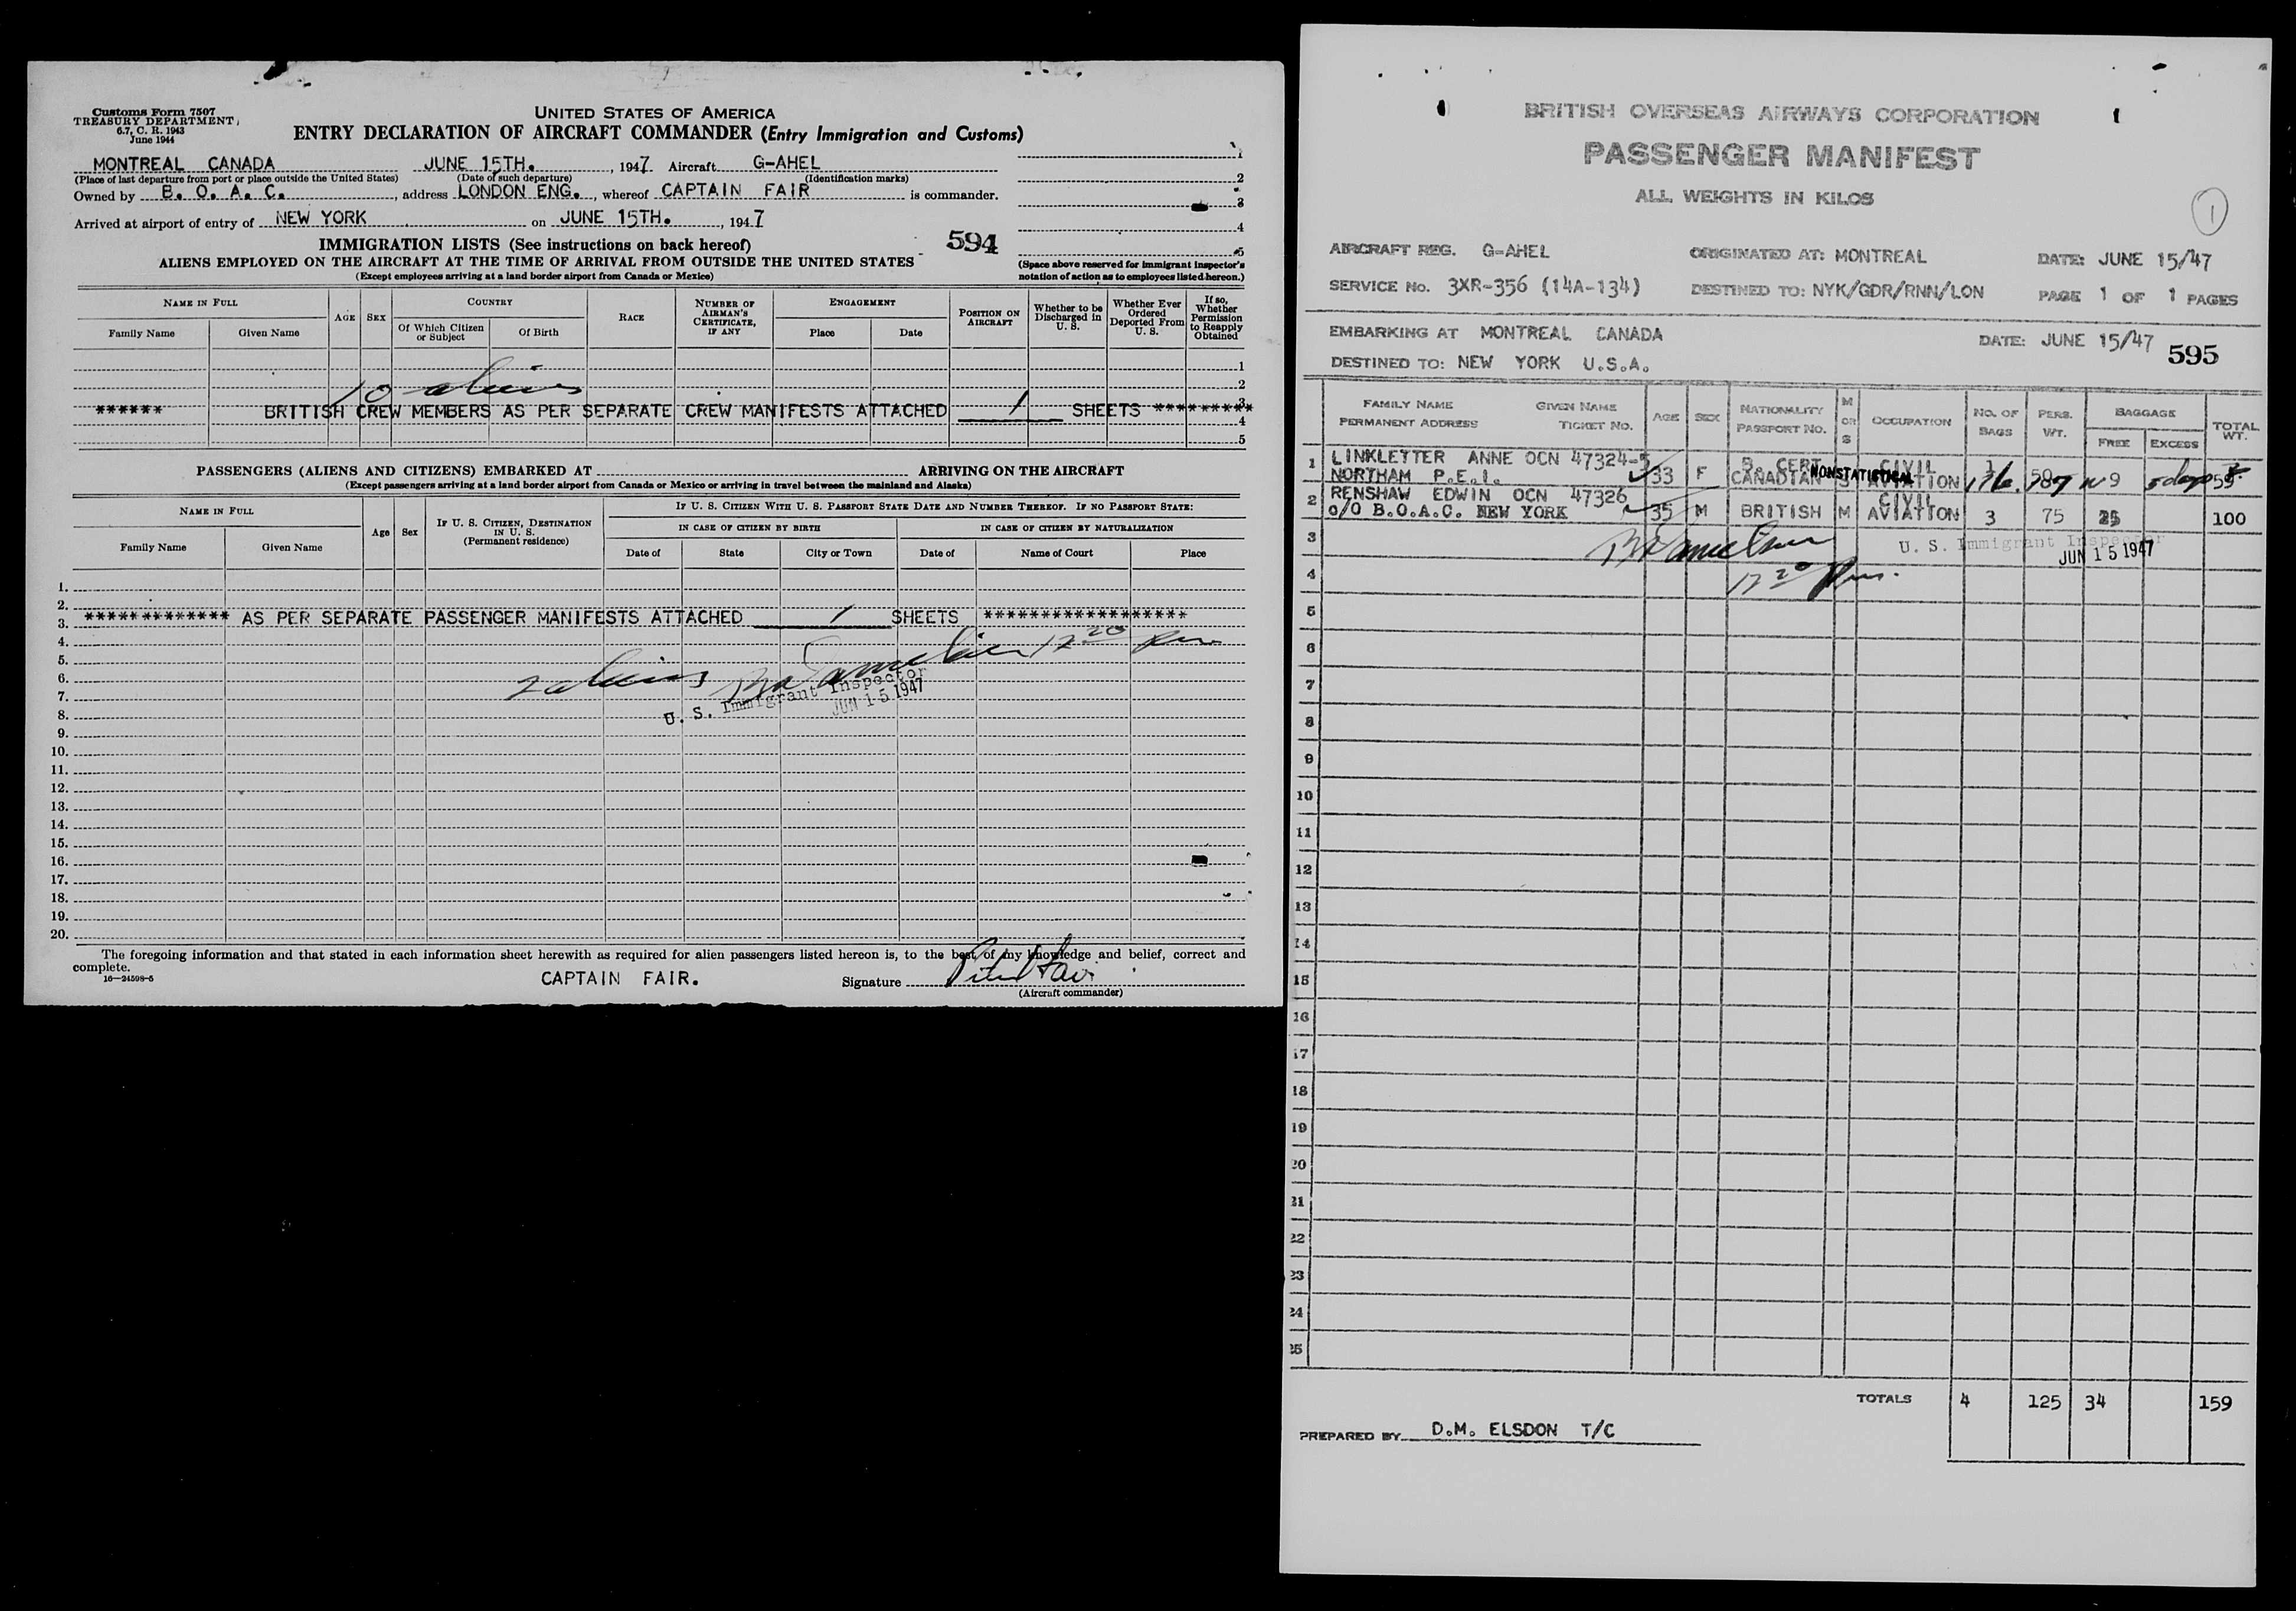 Customs Form 7507
TREASURY DEPARTMENT
6.7, C. R. 1943
June 1944
UNITED STATES OF AMERICA
ENTRY DECLARATION OF AIRCRAFT COMMANDER (Entry Immigration and Customs)
MONTREAL CANADA JUNE 15TH. , 1947 Aircraft G-AHEL
(Place of last departure from port or place outside the United States) (Date of such departure) (Identification marks)
Owned by B. O. A. C. , address LONDON ENG. , whereof CAPTAIN FAIR is commander.
Arrived at airport of entry of NEW YORK on JUNE 15TH. , 1947
1
2
3
4
5
IMMIGRATION LISTS (See instructions on back hereof)
594
ALIENS EMPLOYED ON THE AIRCRAFT AT THE TIME OF ARRIVAL FROM OUTSIDE THE UNITED STATES
(Except employees arriving at a land border airport from Canada or Mexico)
(Space above reserved for immigrant inspector's notation of action as to employees listed hereon.)
NAME IN FULL
Family Name Given Name
AGE SEX
COUNTRY
Of Which Citizen or Subject Of Birth
RACE
NUMBER OF AIRMAN'S CERTIFICATE, IF ANY
ENGAGEMENT
Place Date
POSITION ON AIRCRAFT
Whether to be Discharged in U. S.
Whether Ever Ordered Deported From U. S.
If so, Whether Permission to Reapply Obtained
1
2
10 aliens
3
****** BRITISH CREW MEMBERS AS PER SEPARATE CREW MANIFESTS ATTACHED 1 SHEETS *********
4
5
PASSENGERS (ALIENS AND CITIZENS) EMBARKED AT ARRIVING ON THE AIRCRAFT
(Except passengers arriving at a land border airport from Canada or Mexico or arriving in travel between the mainland and Alaska)
NAME IN FULL
Family Name Given Name
Age Sex
IF U. S. CITIZEN, DESTINATION IN U. S.
(Permanent residence)
IF U. S. CITIZEN WITH U. S. PASSPORT STATE DATE AND NUMBER THEREOF. IF NO PASSPORT STATE:
IN CASE OF CITIZEN BY BIRTH IN CASE OF CITIZEN BY NATURALIZATION
Date of State City or Town Date of Name of Court Place
1.
2.
3. ************* AS PER SEPARATE PASSENGER MANIFESTS ATTACHED 1 SHEETS ******************
4.
5.
6. 2 aliens 12 20 pm
7. U. S. Immigrant Inspector
JUN 15 1947
8.
9.
10.
11.
12.
13.
14.
15.
16.
17.
18.
19.
20.
The foregoing information and that stated in each information sheet herewith as required for alien passengers listed hereon is, to the best of my knowledge and belief, correct and
complete.
16—24598-5
CAPTAIN FAIR. Signature
(Aircraft commander)
BRITISH OVERSEAS AIRWAYS CORPORATION
PASSENGER MANIFEST
ALL WEIGHTS IN KILOS
1
AIRCRAFT REG. G-AHEL ORIGINATED AT: MONTREAL DATE: JUNE 15/47
SERVICE NO. 3XR-356 (14A-134) DESTINED TO: NYK/GDR/RNN/LON PAGE 1 OF 1 PAGES
EMBARKING AT MONTREAL CANADA DATE: JUNE 15/47
595
DESTINED TO: NEW YORK U.S.A.
FAMILY NAME GIVEN NAME
PERMANENT ADDRESS TICKET NO.
AGE SEX
NATIONALITY
PASSPORT NO.
M OR S
OCCUPATION
NO. OF BAGS
PERS. WT.
BAGGAGE
FREE EXCESS
TOTAL WT.
1 LINKLETTER ANNE OCN 47324-5 B. CERT CIVIL 1
NORTHAM P.E.I. 33 F CANADIAN NONSTATISTICAL S AVIATION 50 9 5 days 59
2 RENSHAW EDWIN OCN 47326 CIVIL
c/o B.O.A.C. NEW YORK 35 M BRITISH M AVIATION 3 75 25 100
3 U. S. Immigrant Inspector
JUN 15 1947
4 12 20 pm.
5
6
7
8
9
10
11
12
13
14
15
16
17
18
19
20
21
22
23
24
25
TOTALS 4 125 34 159
PREPARED BY D.M. ELSDON T/C